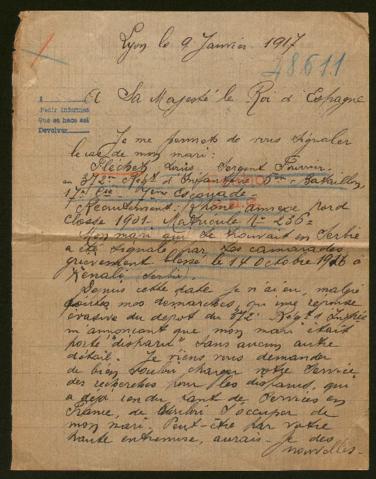 Lyon le 9 Janvier 1917
1
48611
A Sa Majesté le Roi d'Espagne
Pedir informes
Que se hace así
Devolver
Je me permets de vous signaler
le cas de mon mari:
Sergent Fourrier
au 372e Régt d'Infanterie Bataillon
17e Cie Escouade
Recrutement Rhône annexe nord
Classe 1901 - Matricule No 236
Mon mari qui se trouvait en Serbie
a été signalé par ses camarades
grièvement blessé le 14 octobre 1916 à
Kénali Serbie.
Depuis cette date je n'ai eu, malgré
toutes mes démarches, qu'une réponse
évasive du dépôt du 372e Régt d'Infrie
m'annonçant que mon mari était
porté "disparu" sans aucun autre
détail. Je viens vous demander
de bien vouloir charger votre Service
des recherches pour les disparus, qui
a déjà rendu tant de services en
France, de s'occuper de
mon mari. Peut-être par votre
haute entremise, aurais-je des
nouvelles.